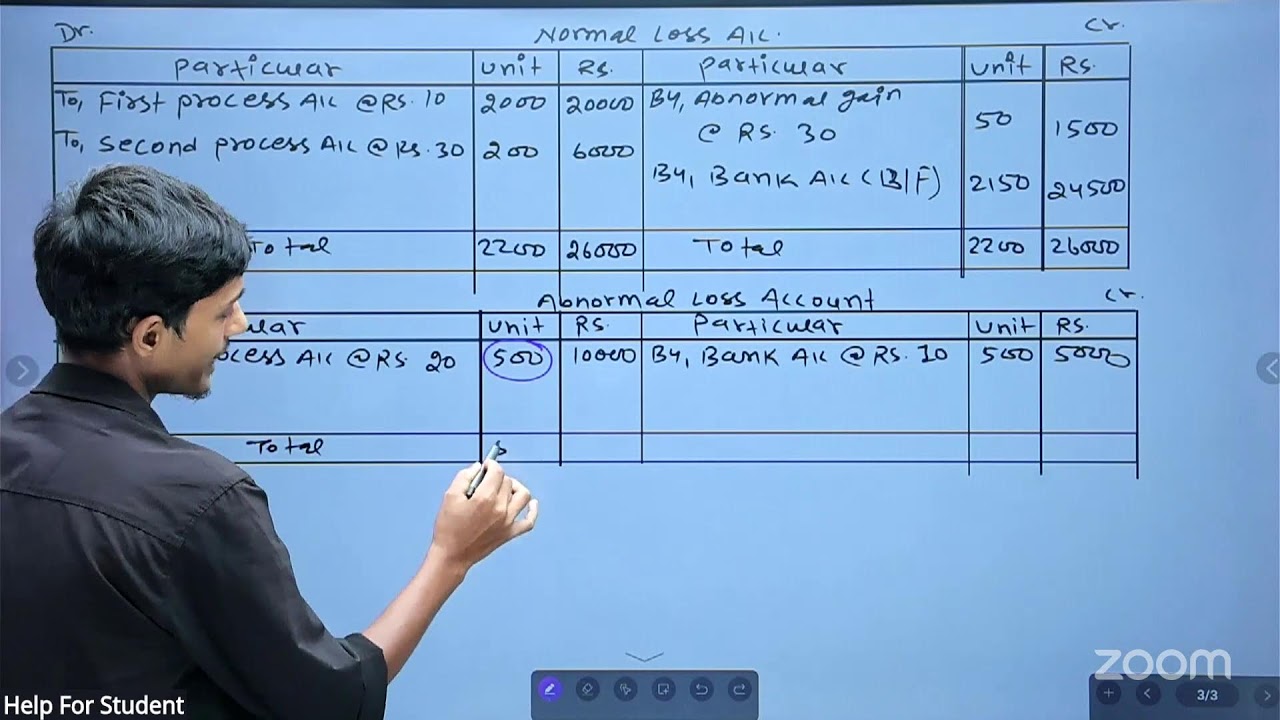 Dr. Normal Loss A/c. Cr.
Particular unit Rs. Particular unit Rs.
To, First process A/c @Rs. 10 2000 20000 By, Abnormal gain
@ Rs. 30 50 1500
To, Second process A/c @ Rs. 30 200 6000
By, Bank A/c (B/F) 2150 24500
Total 2200 26000 Total 2200 26000
Abnormal Loss Account Cr.
unit Rs. Particular unit Rs.
A/c @ Rs. 20 500 10000 By, Bank A/c @ Rs. 10 500 5000
Total
zoom
3/3
Help For Student